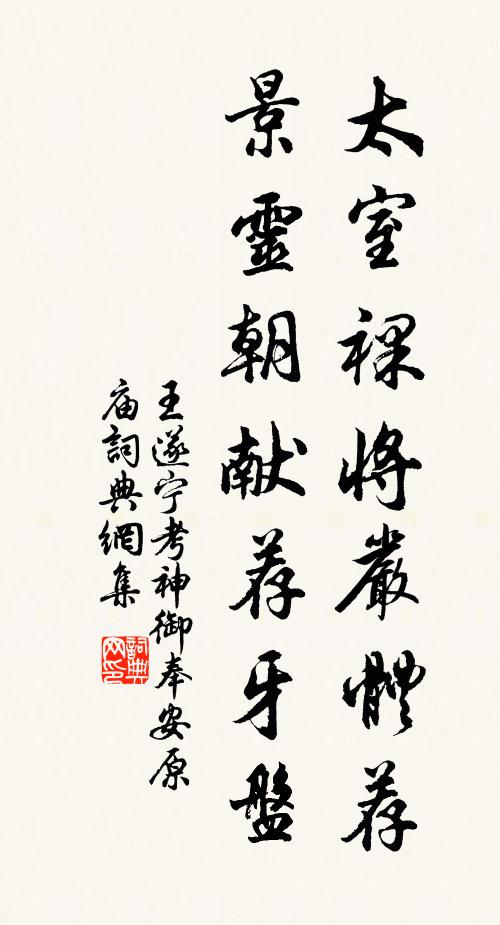 太室祼將嚴體荐
景靈朝献荐牙盤
王遂宁考神御奉安原
庙詞典網集
詞典网印